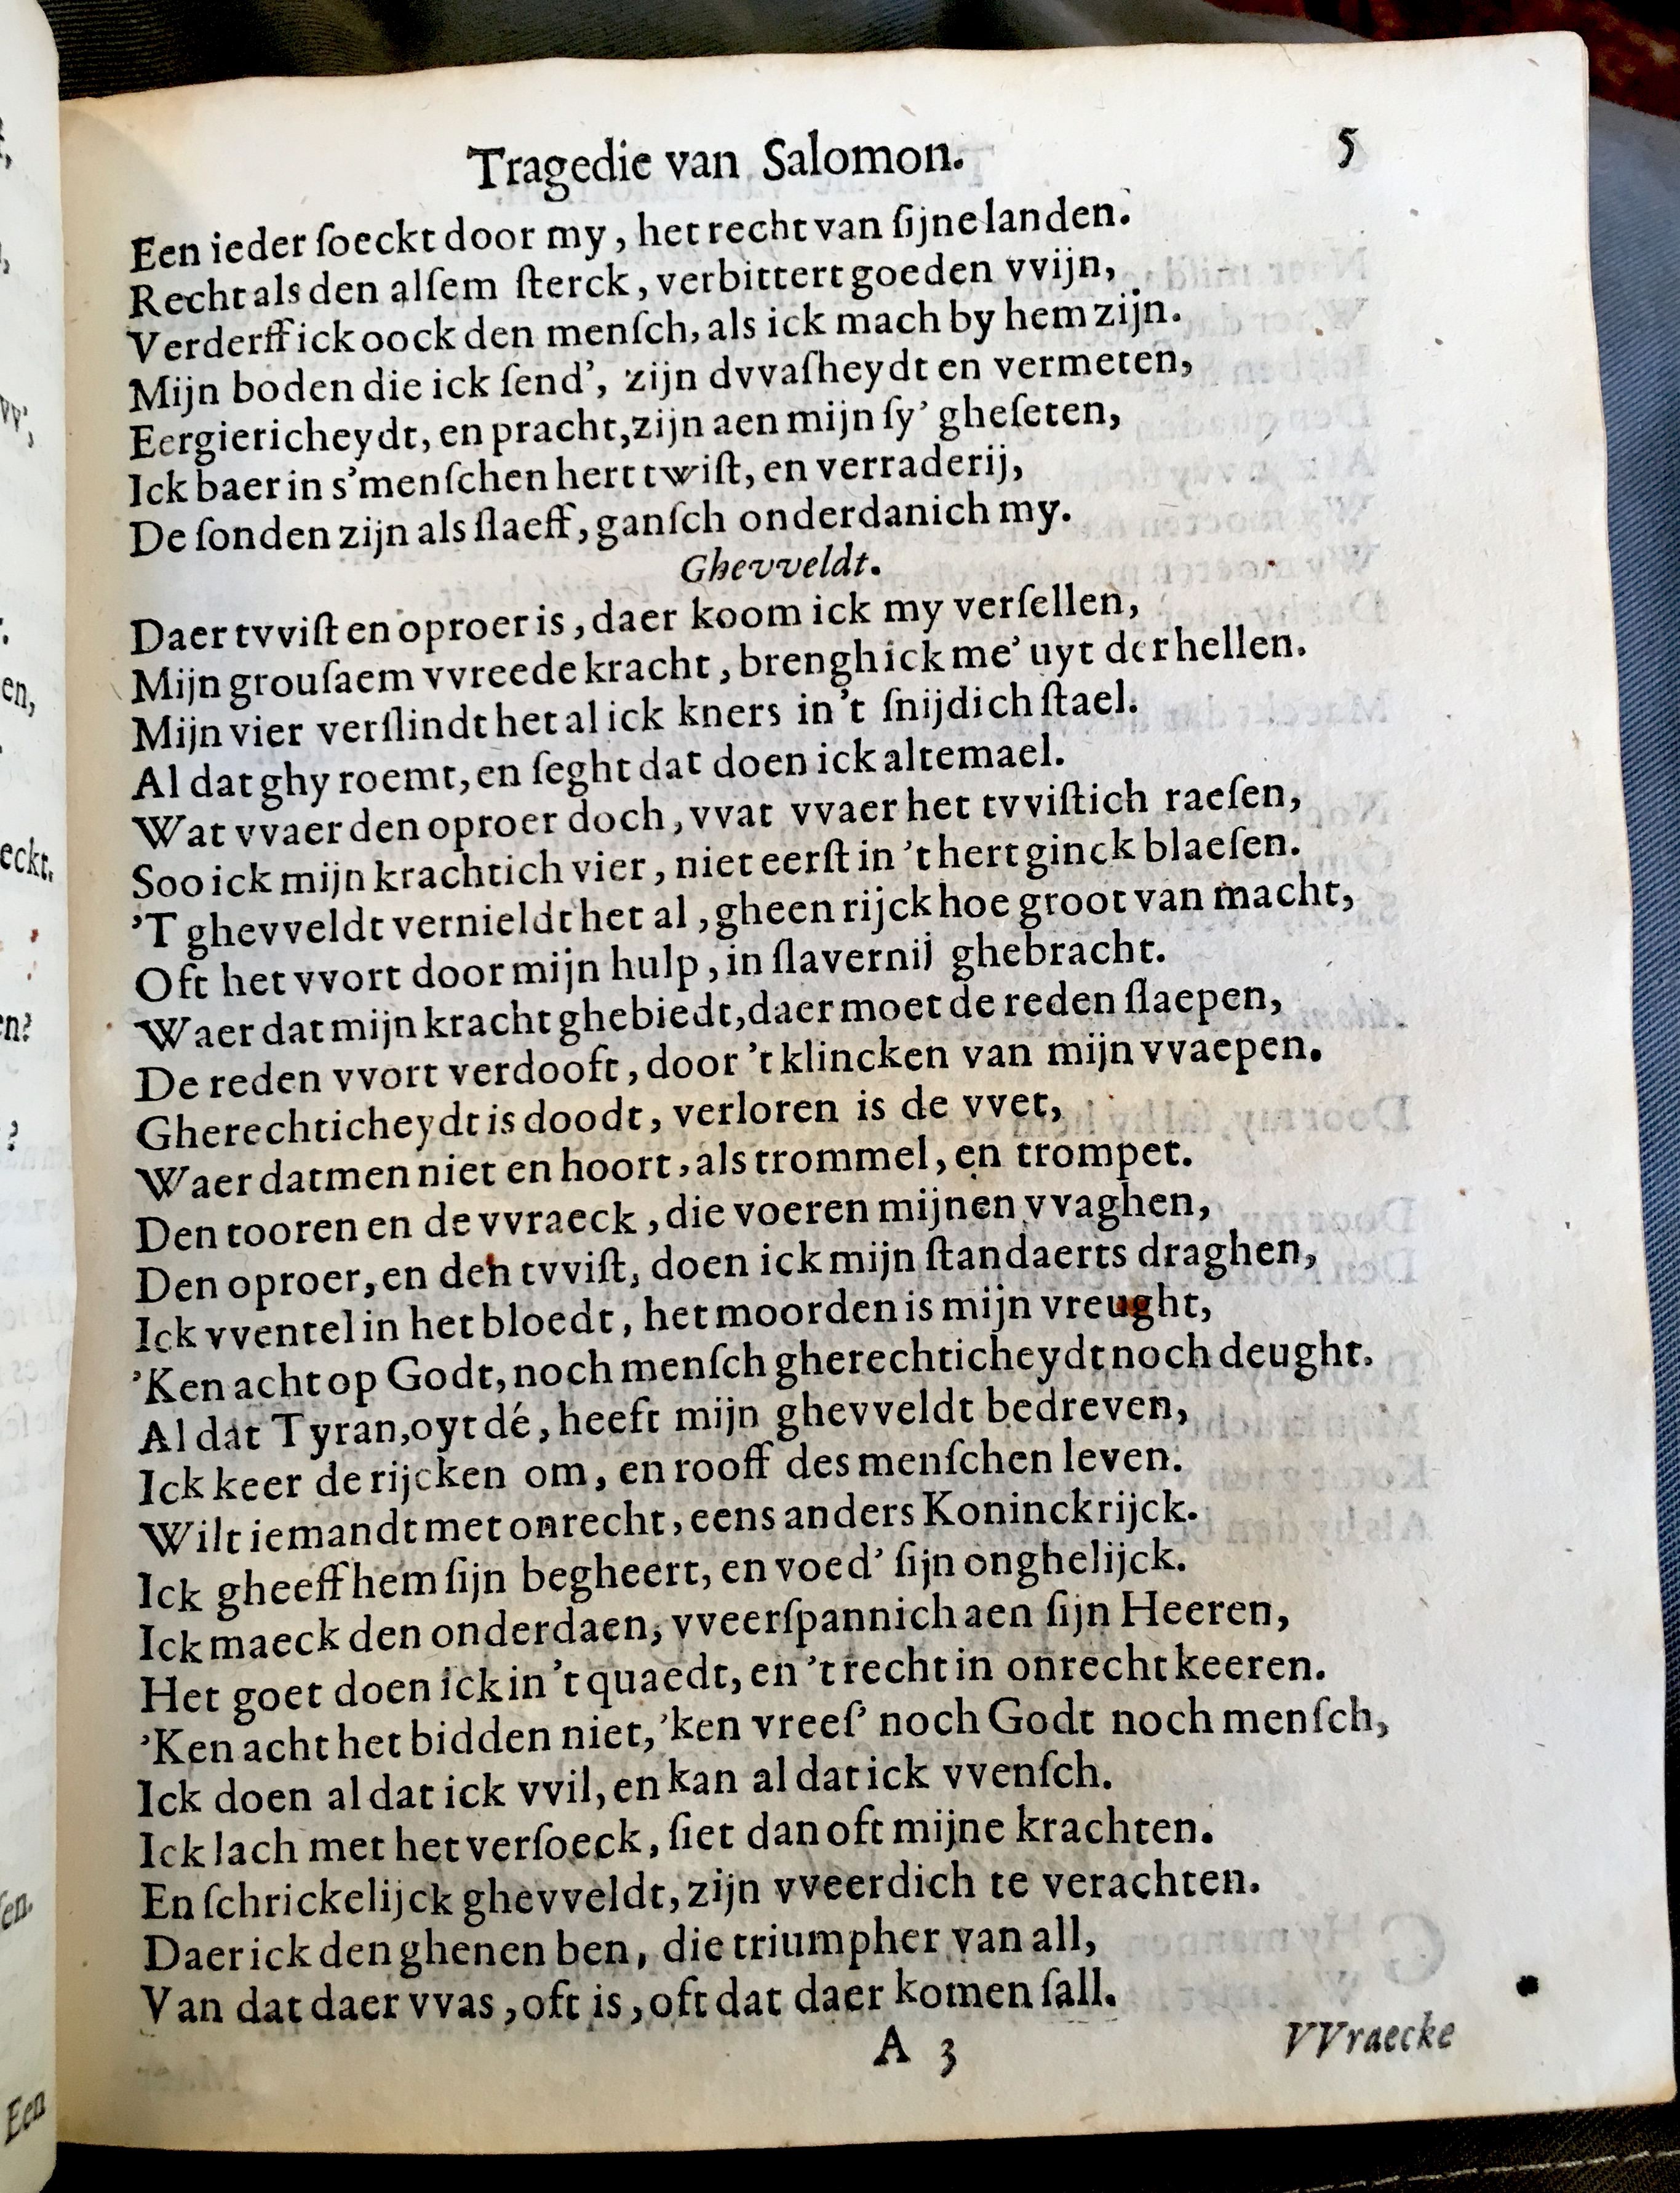 Tragedie van Salomon. 5
Een ieder ſoeckt door my, het recht van ſijne landen.
Recht als den alſem ſterck, verbittert goeden vvijn,
Verderff ick oock den menſch, als ick mach by hem zijn.
Mijn boden die ick ſend', zijn dvvaſheydt en vermeten,
Eergiericheydt, en pracht, zijn aen mijn ſy' gheſeten,
Ick baer in s'menſchen hert twiſt, en verraderij,
De ſonden zijn als ſlaeff, ganſch onderdanich my.
Ghevveldt.
Daer tvviſt en oproer is, daer koom ick my verſellen,
Mijn grouſaem vvreede kracht, brengh ick me' uyt der hellen.
Mijn vier verſlindt het al ick kners in't ſnijdich ſtael.
Al dat ghy roemt, en ſeght dat doen ick altemael.
Wat vvaer den oproer doch, vvat vvaer het tvviſtich raeſen,
Soo ick mijn krachtich vier, niet eerſt in 't hert ginck blaeſen.
'T ghevveldt vernieldt het al, gheen rijck hoe groot van macht,
Oft het vvort door mijn hulp, in ſlavernij ghebracht.
Waer dat mijn kracht ghebiedt, daer moet de reden ſlaepen,
De reden vvort verdooft, door 't klincken van mijn vvaepen.
Gherechticheydt is doodt, verloren is de vvet,
Waer datmen niet en hoort, als trommel, en trompet.
Den tooren en de vvraeck, die voeren mijnen vvaghen,
Den oproer, en den tvviſt, doen ick mijn ſtandaerts draghen,
Ick vventel in het bloedt, het moorden is mijn vreught,
'Ken acht op Godt, noch menſch gherechticheydt noch deught.
Al dat Tyran, oyt dé, heeft mijn ghevveldt bedreven,
Ick keer de rijcken om, en rooff des menſchen leven.
Wilt iemandt met onrecht, eens anders Koninckrijck.
Ick gheeff hem ſijn begheert, en voed' ſijn onghelijck.
Ick maeck den onderdaen, vveerſpannich aen ſijn Heeren,
Het goet doen ick in 't quaedt, en 't recht in onrecht keeren.
'Ken acht het bidden niet, 'ken vreeſ' noch Godt noch menſch,
Ick doen al dat ick vvil, en kan al dat ick vvenſch.
Ick lach met het verſoeck, ſiet dan oft mijne krachten.
En ſchrickelijck ghevveldt, zijn vveerdich te verachten.
Daer ick den ghenen ben, die triumpher van all,
Van dat daer vvas, oft is, oft dat daer komen ſall.
A 3 VVraecke